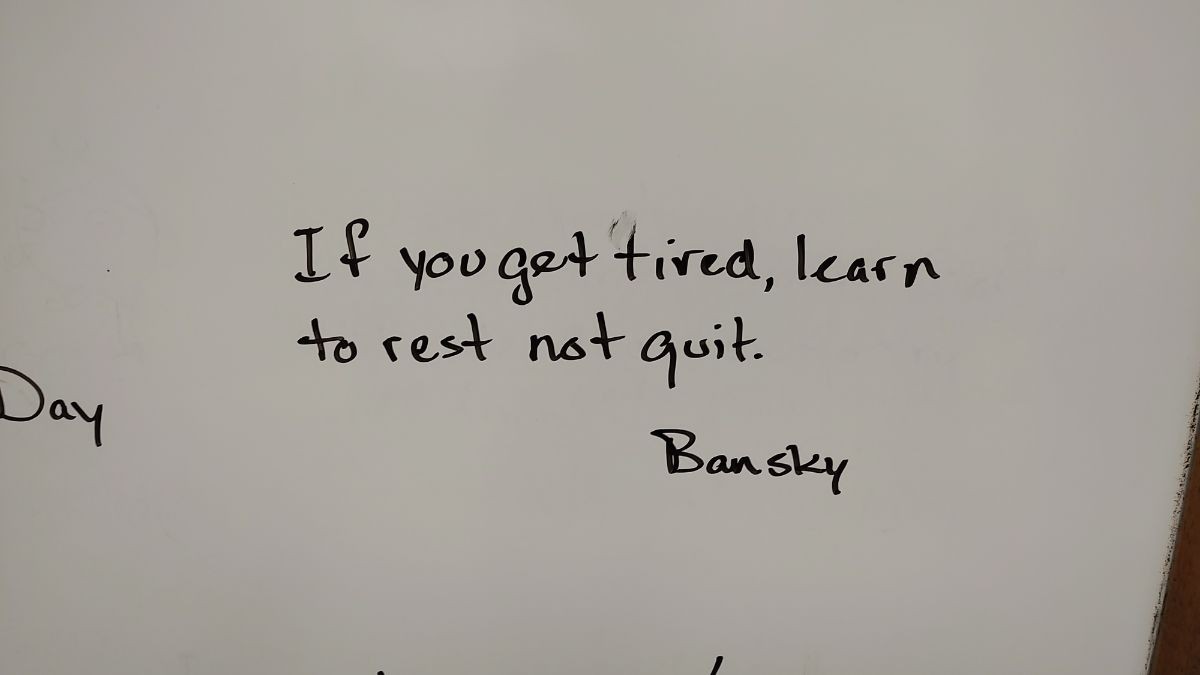 If you get tired, learn
to rest not quit.
Day
Bansky